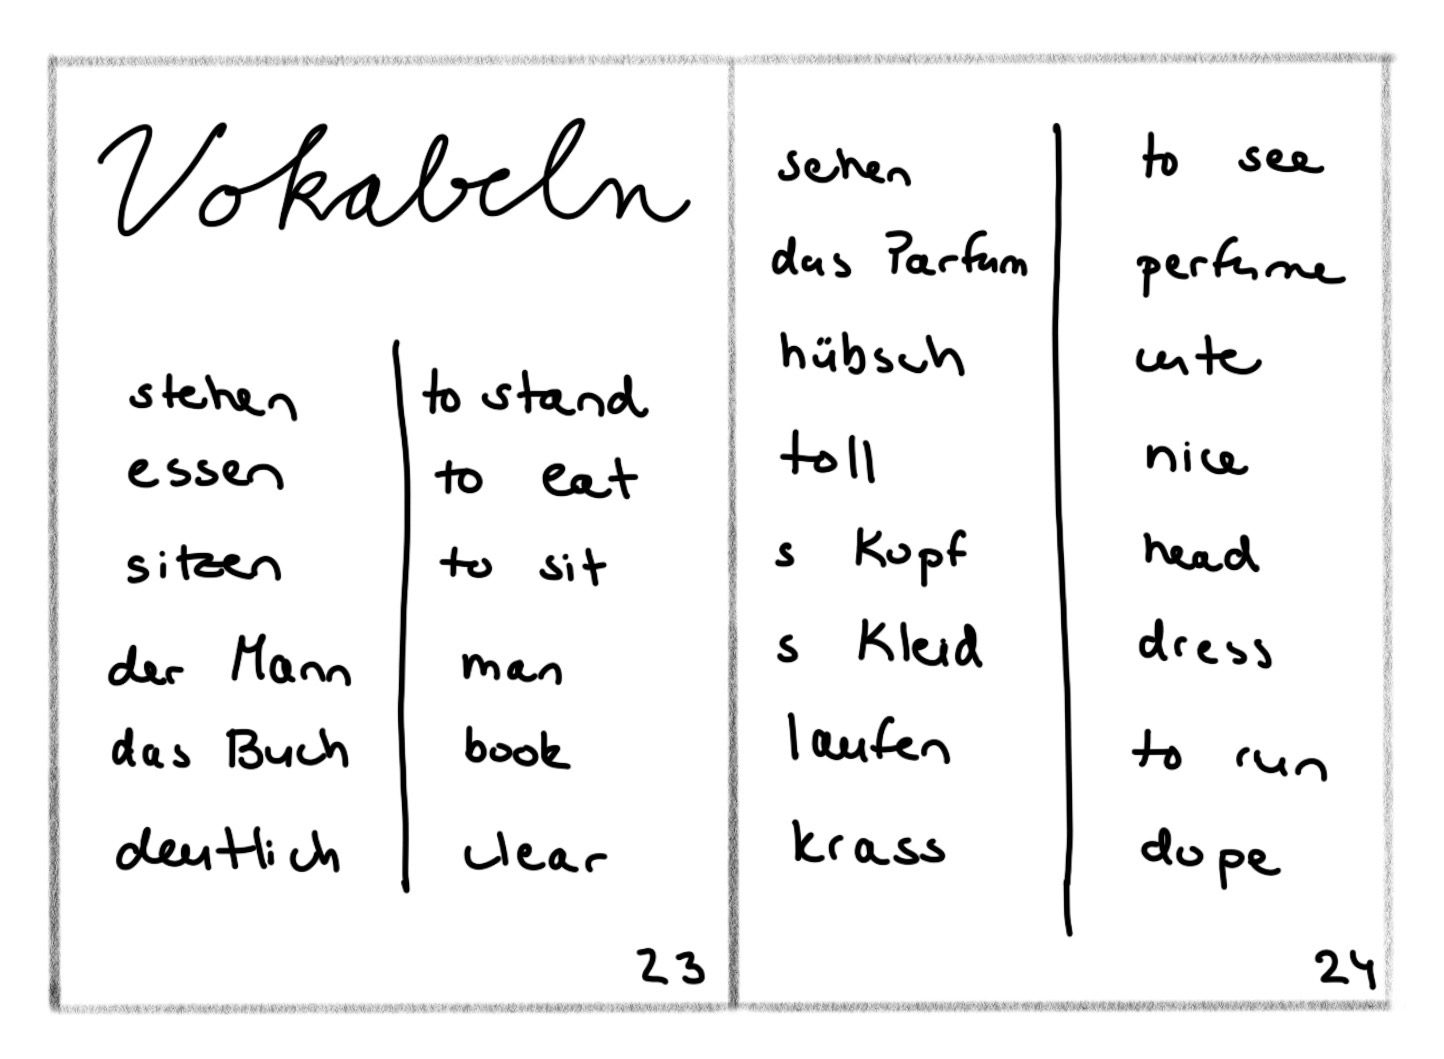 Vokabeln
stehen to stand
essen to eat
sitzen to sit
der Mann man
das Buch book
deutlich clear
23
sehen to see
das Parfum perfume
hübsch cute
toll nice
s Kopf head
s Kleid dress
laufen to run
krass dope
24